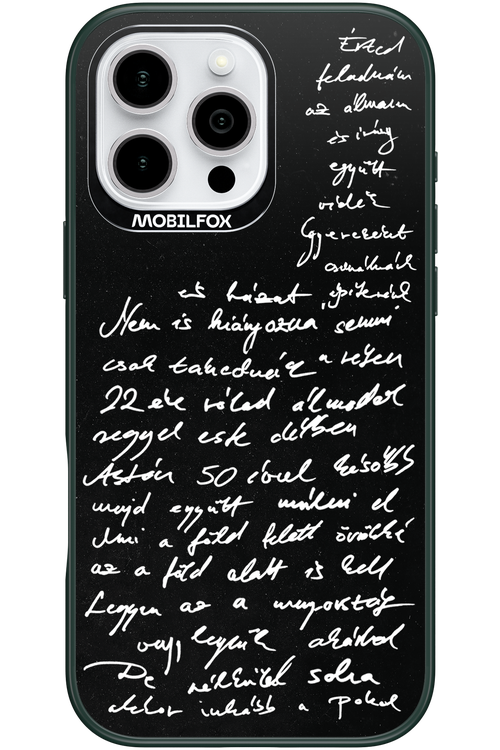 MOBILFOX
Érted
feladnám
az álmaim
és így
együtt
veled
Gyerekeket
csinálnék
és házat építenék
Nem is hiányozna semmi
csak takednác a rétem
22 éve rólad álmodok
reggel este délben
Aztán 50 évvel később
majd együtt múlni el
Ami a föld felett örökké
az a föld alatt is kell
Legyen az a mennyország
vagy legyünk akárhol
De nélküled soha
akkor inkább a pokol